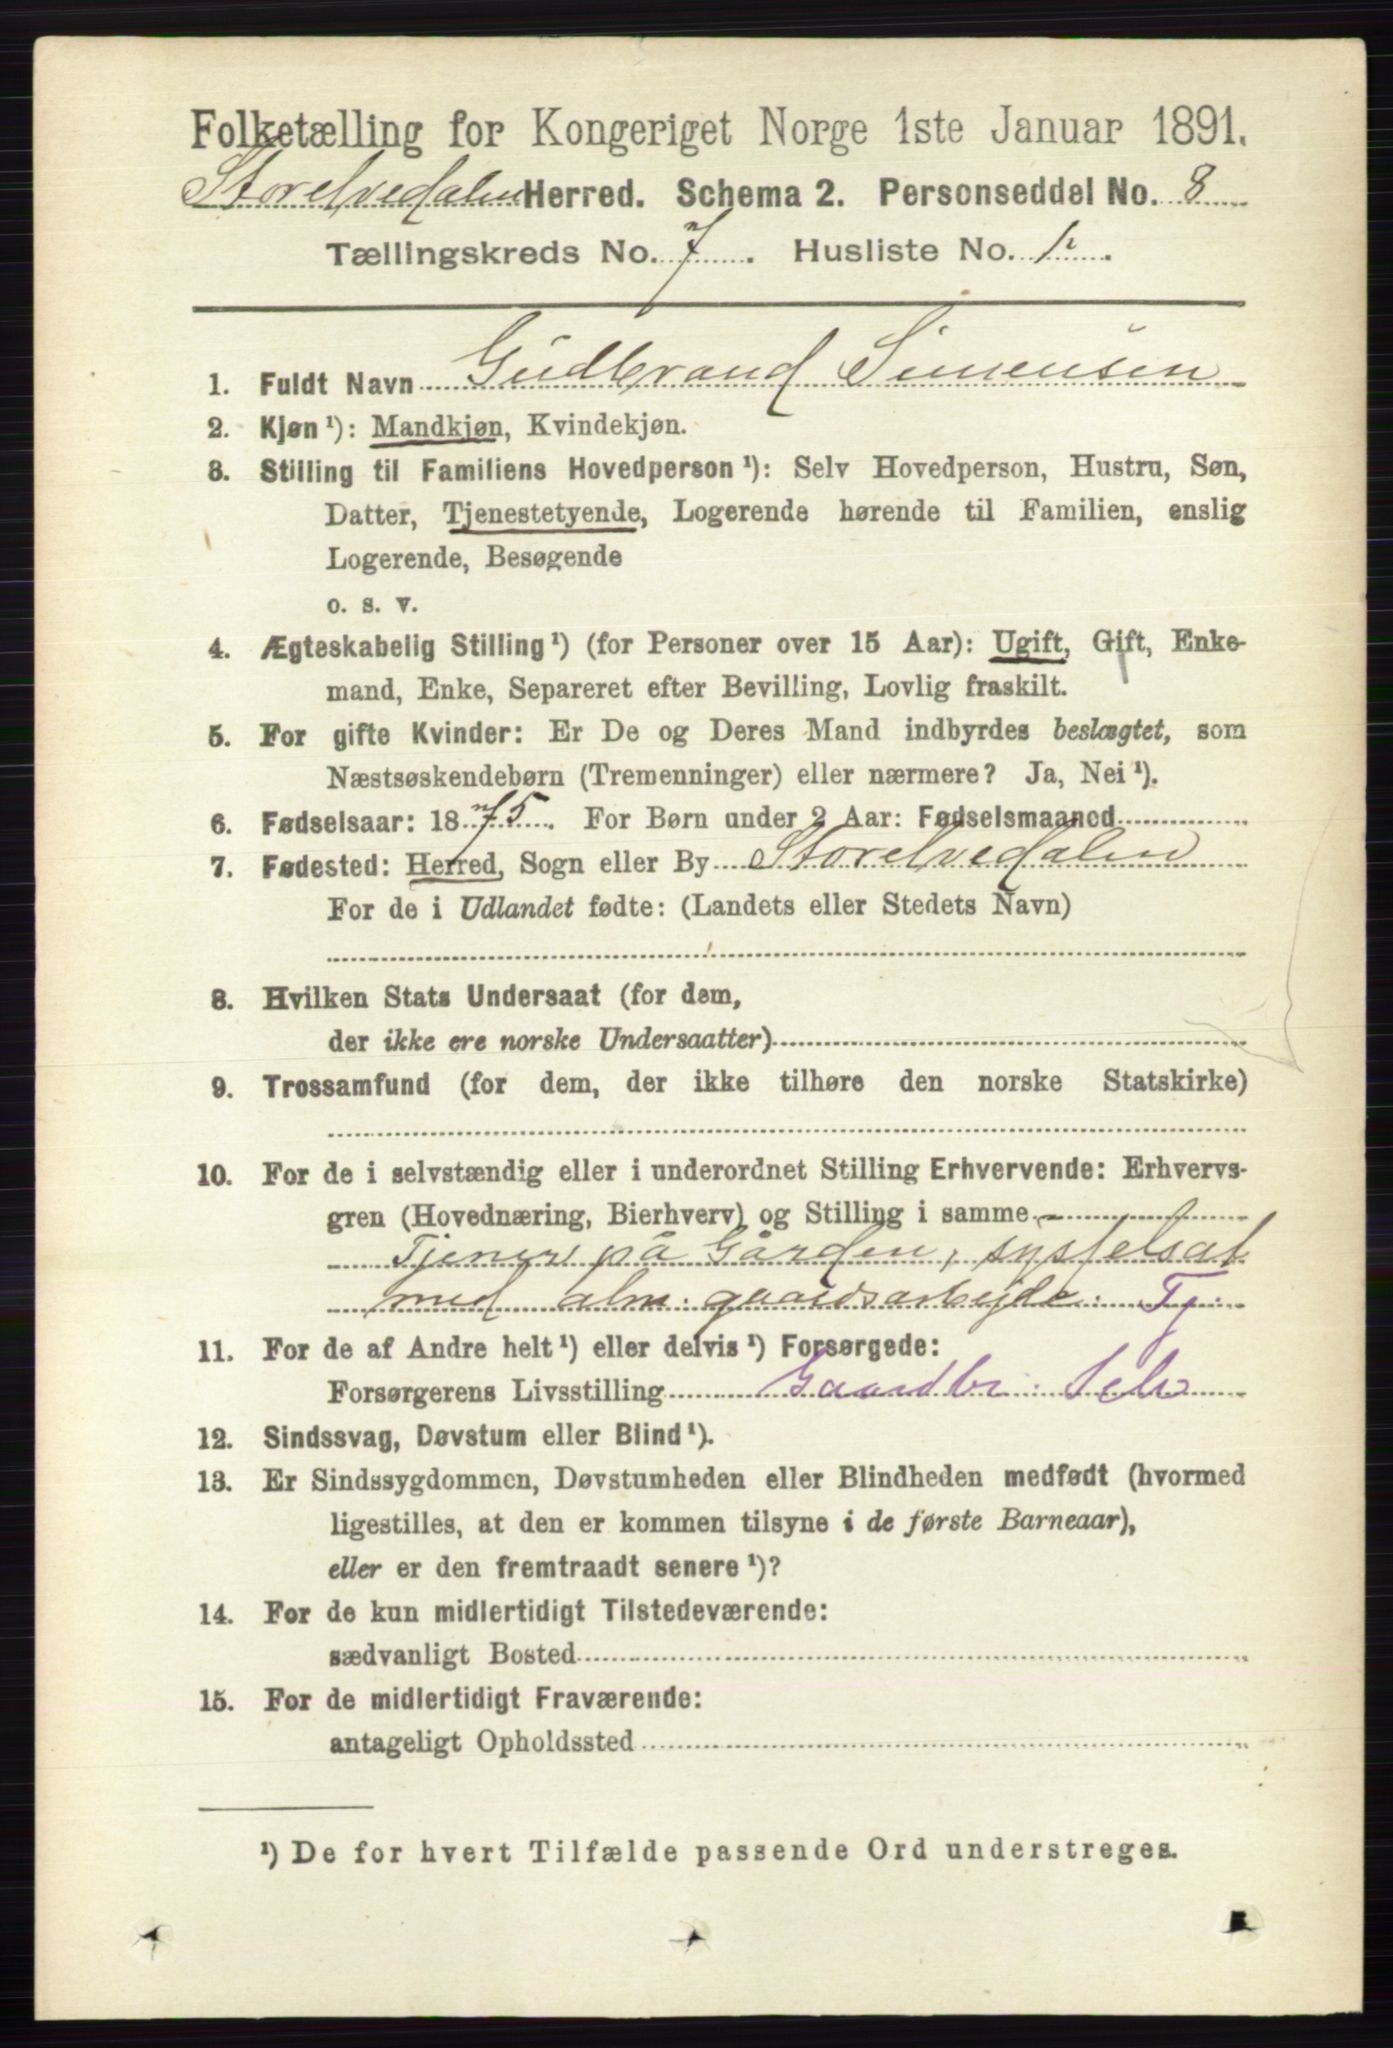 Folketælling for Kongeriget Norge 1ste Januar 1891.
Storelvedalen Herred. Schema 2. Personseddel No. 8
Tællingskreds No. 7. Husliste No. 1.
1. Fuldt Navn Gudbrand Simensen
2. Kjøn ¹): Mandkjøn, Kvindekjøn.
3. Stilling til Familiens Hovedperson ¹): Selv Hovedperson, Hustru, Søn,
Datter, Tjenestetyende, Logerende hørende til Familien, enslig
Logerende, Besøgende
o. s. v.
4. Ægteskabelig Stilling ¹) (for Personer over 15 Aar): Ugift, Gift, Enke-
mand, Enke, Separeret efter Bevilling, Lovlig fraskilt.
5. For gifte Kvinder: Er De og Deres Mand indbyrdes beslægtet, som
Næstsøskendebørn (Tremenninger) eller nærmere? Ja, Nei ¹).
6. Fødselsaar: 1875. For Børn under 2 Aar: Fødselsmaaned
7. Fødested: Herred, Sogn eller By Storelvedalen
For de i Udlandet fødte: (Landets eller Stedets Navn)
8. Hvilken Stats Undersaat (for dem,
der ikke ere norske Undersaatter)
9. Trossamfund (for dem, der ikke tilhøre den norske Statskirke)
10. For de i selvstændig eller i underordnet Stilling Erhvervende: Erhvervs-
gren (Hovednæring, Bierhverv) og Stilling i samme
Tjener på Gården, sysselsat
med alm. gaardsarbejde. Tj.
11. For de af Andre helt ¹) eller delvis ¹) Forsørgede:
Forsørgerens Livsstilling Gaardbr. Selv
12. Sindssvag, Døvstum eller Blind ¹).
13. Er Sindssygdommen, Døvstumheden eller Blindheden medfødt (hvormed
ligestilles, at den er kommen tilsyne i de første Barneaar),
eller er den fremtraadt senere ¹)?
14. For de kun midlertidigt Tilstedeværende:
sædvanligt Bosted
15. For de midlertidigt Fraværende:
antageligt Opholdssted
¹) De for hvert Tilfælde passende Ord understreges.